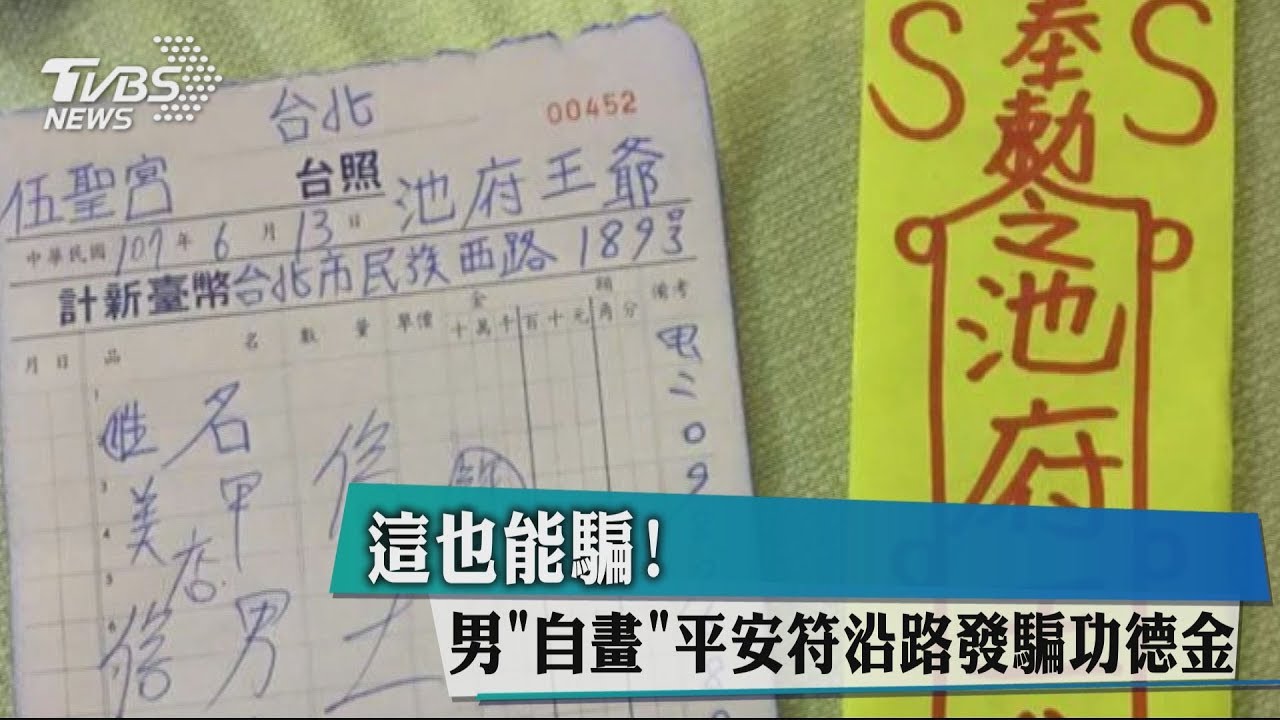 TVBS
NEWS
台北
00452
伍聖宮 台照 池府王爺
中華民國107年6月13日
計新臺幣台北市民族西路189號
月日 品名 數量 單價 金額 十萬千百十元角分 備考
姓名
美甲店
男士
电二09
奉勅之池府
S S
這也能騙!
男"自畫"平安符沿路發騙功德金